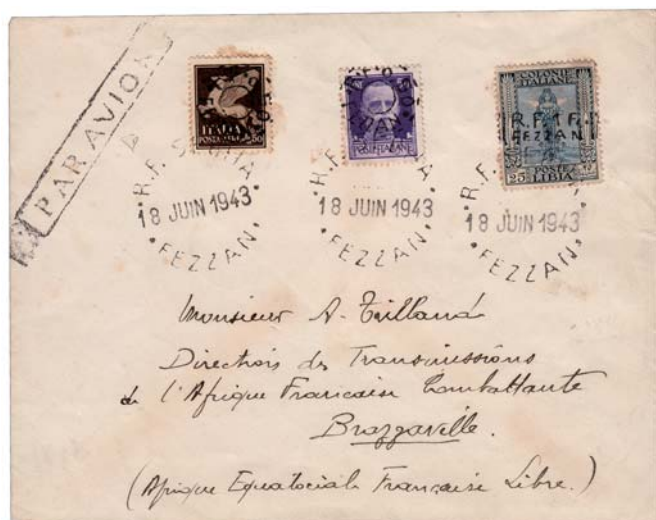 PAR AVION
ITALIA
POSTA AEREA
50
POSTE ITALIANE
COLONIE ITALIANE
R.F. 1 F.
FEZZAN
25
POSTE
LIBIA
R.F. SEBHA
18 JUIN 1943
FEZZAN
R.F. A
18 JUIN 1943
FEZZAN
R.F.
18 JUIN 1943
FEZZAN
Monsieur A.
Direction des Transmissions
de l'Afrique Française Combattante
Brazzaville.
(Afrique Equatoriale Française Libre.)